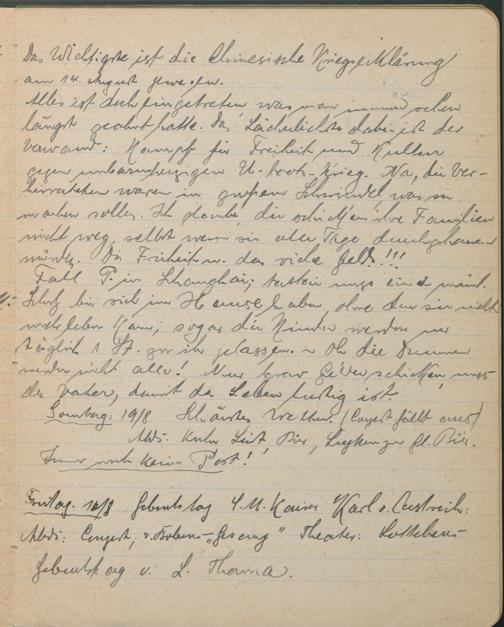 Das Wichtigste ist die Chinesische Kriegserklärung
am 14. August gewesen.
Alles ist doch eingetreten was man immer schon
längst geahnt hatte. Das Lächerlichste dabei ist der
Vorwand: Kampf für Freiheit und Kultur
gegen unbarmherzigen U-boots-Krieg. Na, die Ver-
heirateten waren in großem Schwindel was sie
machen sollen. Ich glaube, die schicken ihre Familien
nicht weg, selbst wenn sie alle Tage
würden. Die Freiheit u. das viele Geld!!!
Fall P. in Shanghai;
bei sich im Hause haben, ohne den sie nicht
mehr leben kann; sogar die Kinder werden nur
täglich 1 St. zu ihr gelassen. Oh die Dummen
werden nicht alle! Nur brav Gelder schicken muss
der Vater, damit das Leben lustig ist.
Sonntag: 19/8 Schönstes Wetter. (Conzert fällt aus)
Abds. Bier, fl. Bier.
Immer noch keine Post!
Freitag. 8 Geburtstag S.M. Kaiser Karl v. Oestreich:
Abds: Conzert, "Gesang" Theater:
Geburtstag v. L. Thoma.